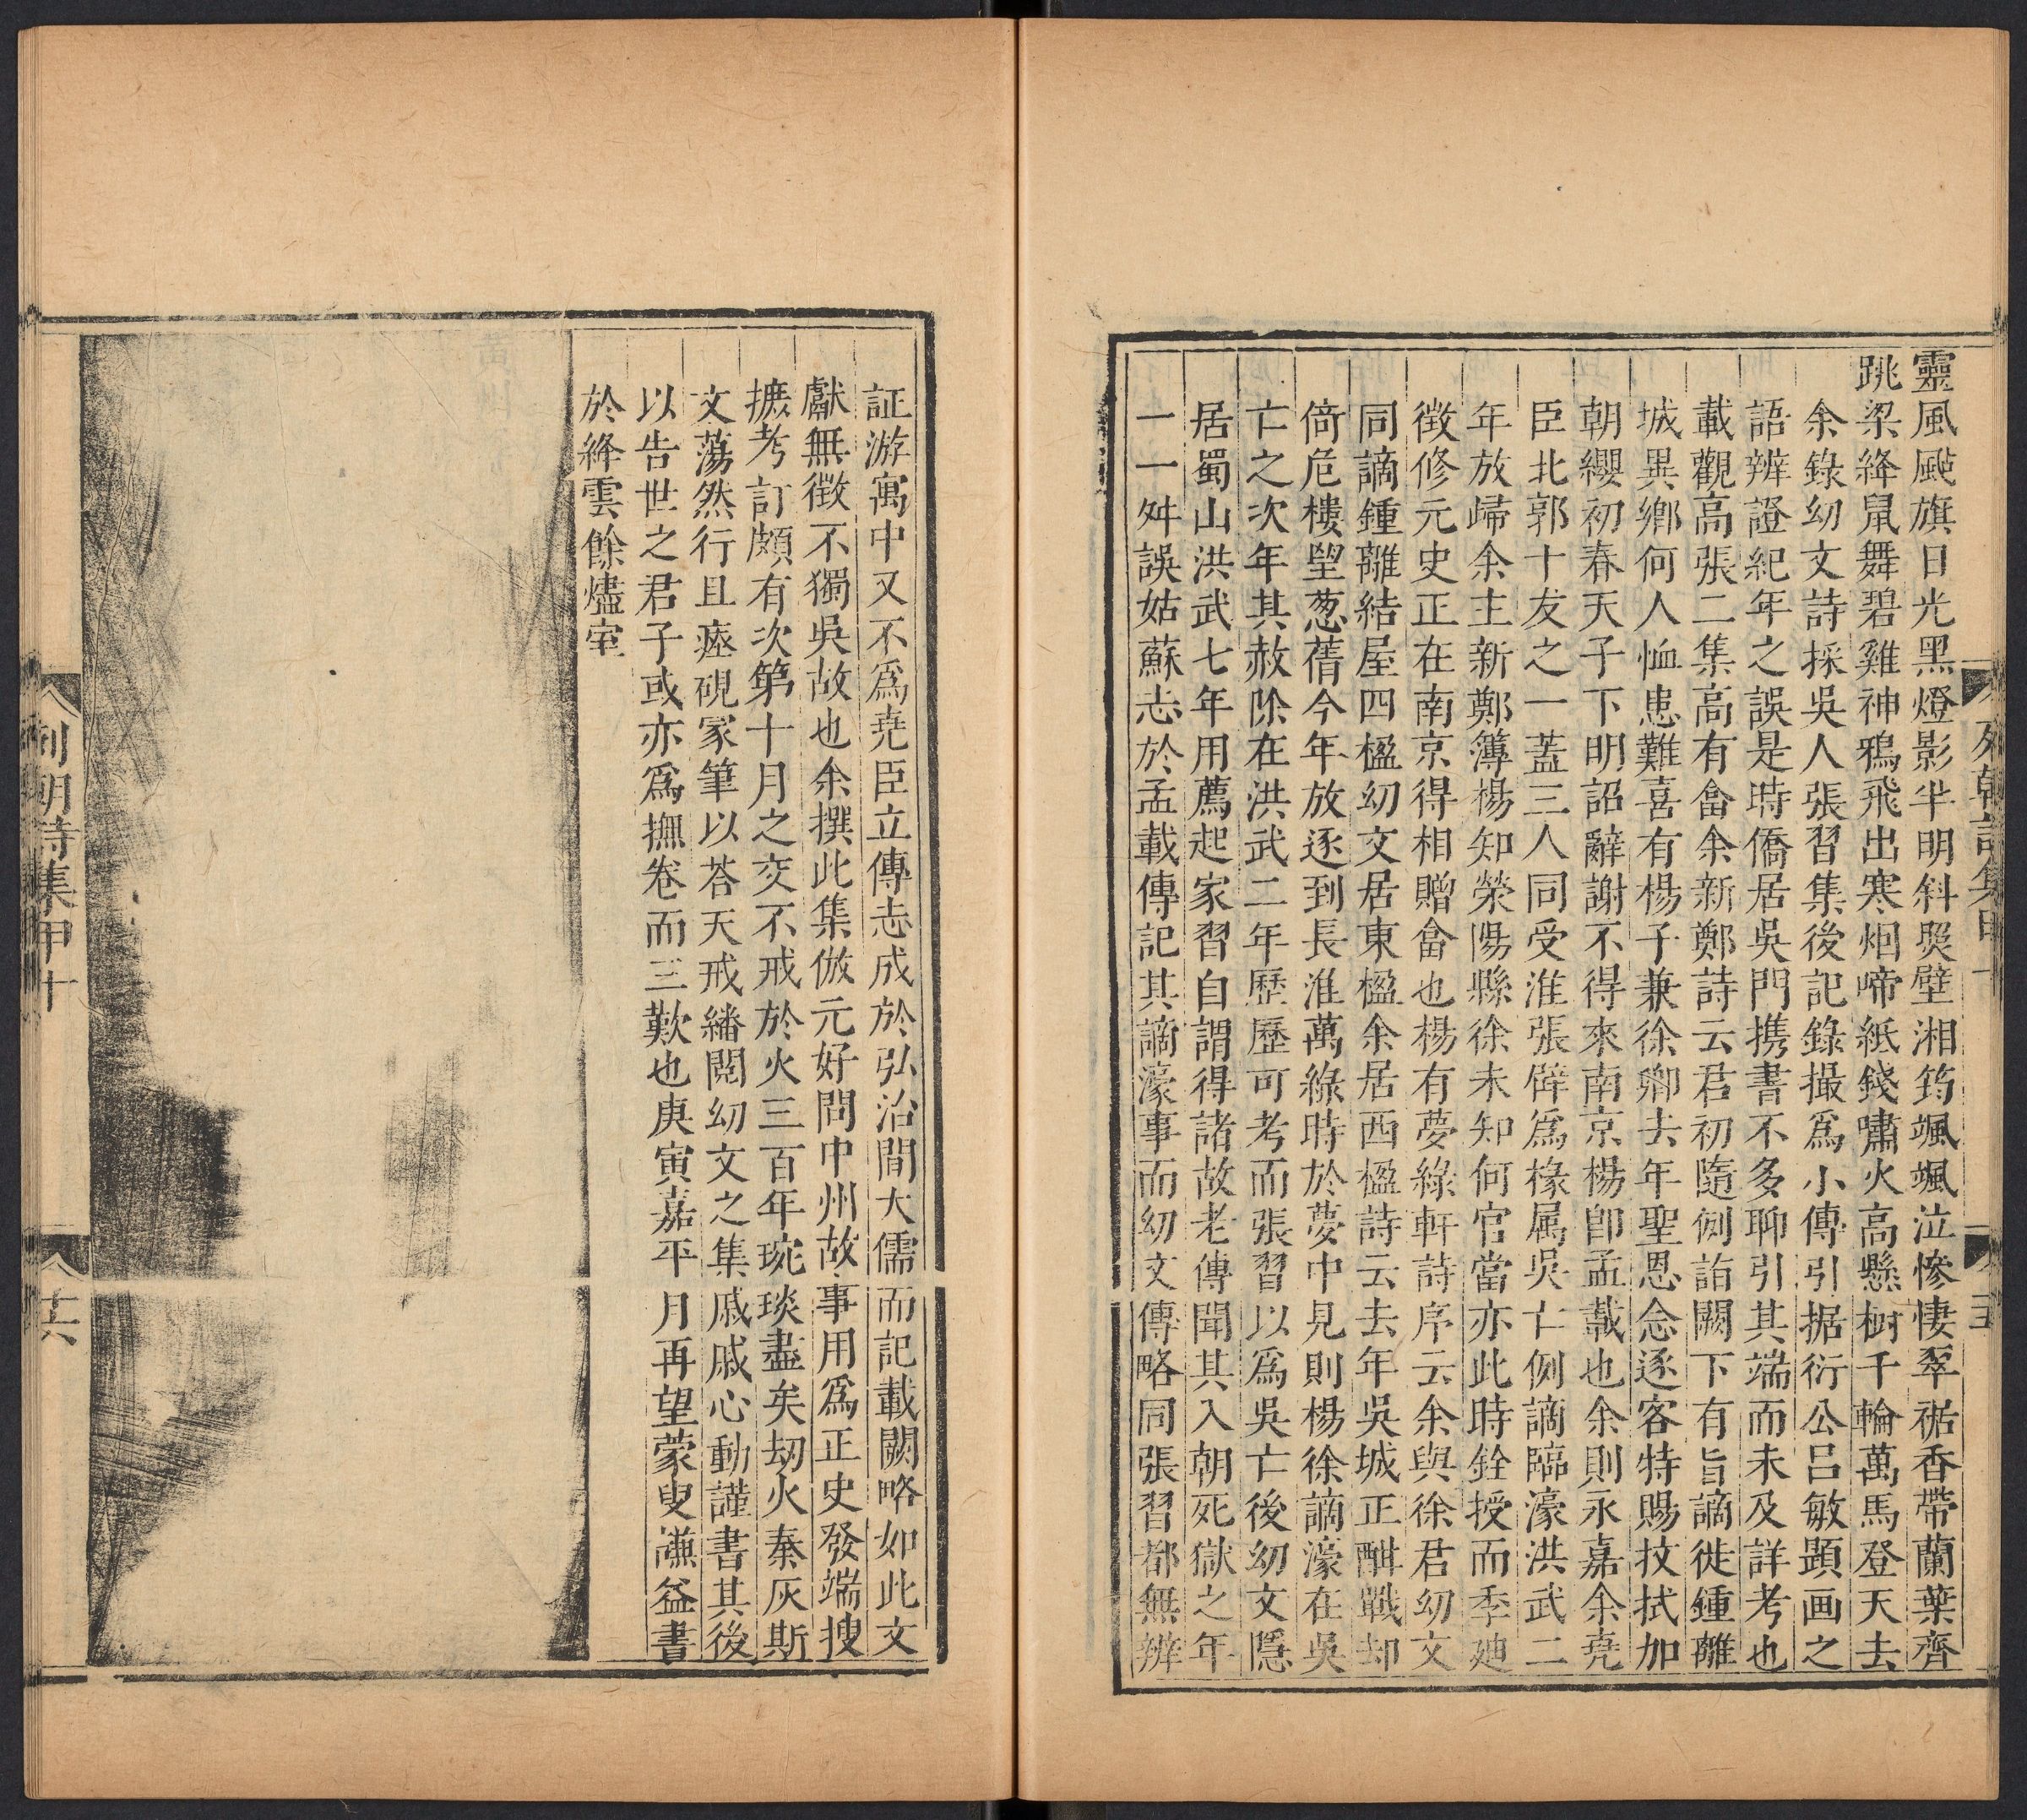 靈風颭旗日光黑燈影半明斜煚壁湘筠颯颯泣慘悽翠裾香帶蘭葉齊
跳梁絳鼠舞碧雞神鴉飛出寒烟啼紙錢嘯火高懸樹千輪萬馬登天去
余錄幼文詩採吳人張習集後記錄撮爲小傳引据衍公呂敏題画之
語辨證紀年之誤是時僑居吳門携書不多聊引其端而未及詳考也
載觀高張二集高有畣余新鄭詩云君初隨例詣闕下有旨謫徙鍾離
城異鄉何人恤患難喜有楊子兼徐卿去年聖恩念逐客特賜抆拭加
朝纓初春天子下明詔辭謝不得來南京楊卽孟載也余則永嘉余堯
臣北郭十友之一蓋三人同受淮張辟爲椽属吳亡例謫臨濠洪武二
年放歸余主新鄭簿楊知滎陽縣徐未知何官當亦此時銓授而季廸
徴修元史正在南京得相贈畣也楊有夢綠軒詩序云余與徐君幼文
同謫鍾離結屋四楹幼文居東楹余居西楹詩云去年吳城正酣戰却
倚危樓望葱蒨今年放逐到長淮萬綠時於夢中見則楊徐謫濠在吳
亡之次年其赦除在洪武二年歷歷可考而張習以爲吳亡後幼文隱
居蜀山洪武七年用薦起家習自謂得諸故老傳聞其入朝死獄之年
一一舛誤姑蘇志於孟載傳記其謫濠事而幼文傳略同張習都無辨
列朝詩集甲十
証游寓中又不爲堯臣立傳志成於弘治間大儒而記載闕略如此文
獻無徴不獨吳故也余撰此集倣元好問中州故事用爲正史發端搜
摭考訂頗有次第十月之交不戒於火三百年琬琰盡矣刼火秦灰斯
文蕩然行且瘞硯冢筆以荅天戒繙閱幼文之集戚戚心動謹書其後
以告世之君子或亦爲撫卷而三歎也庚寅嘉平月再望蒙叟謙益書
於絳雲餘燼室
列朝詩集甲十
十六